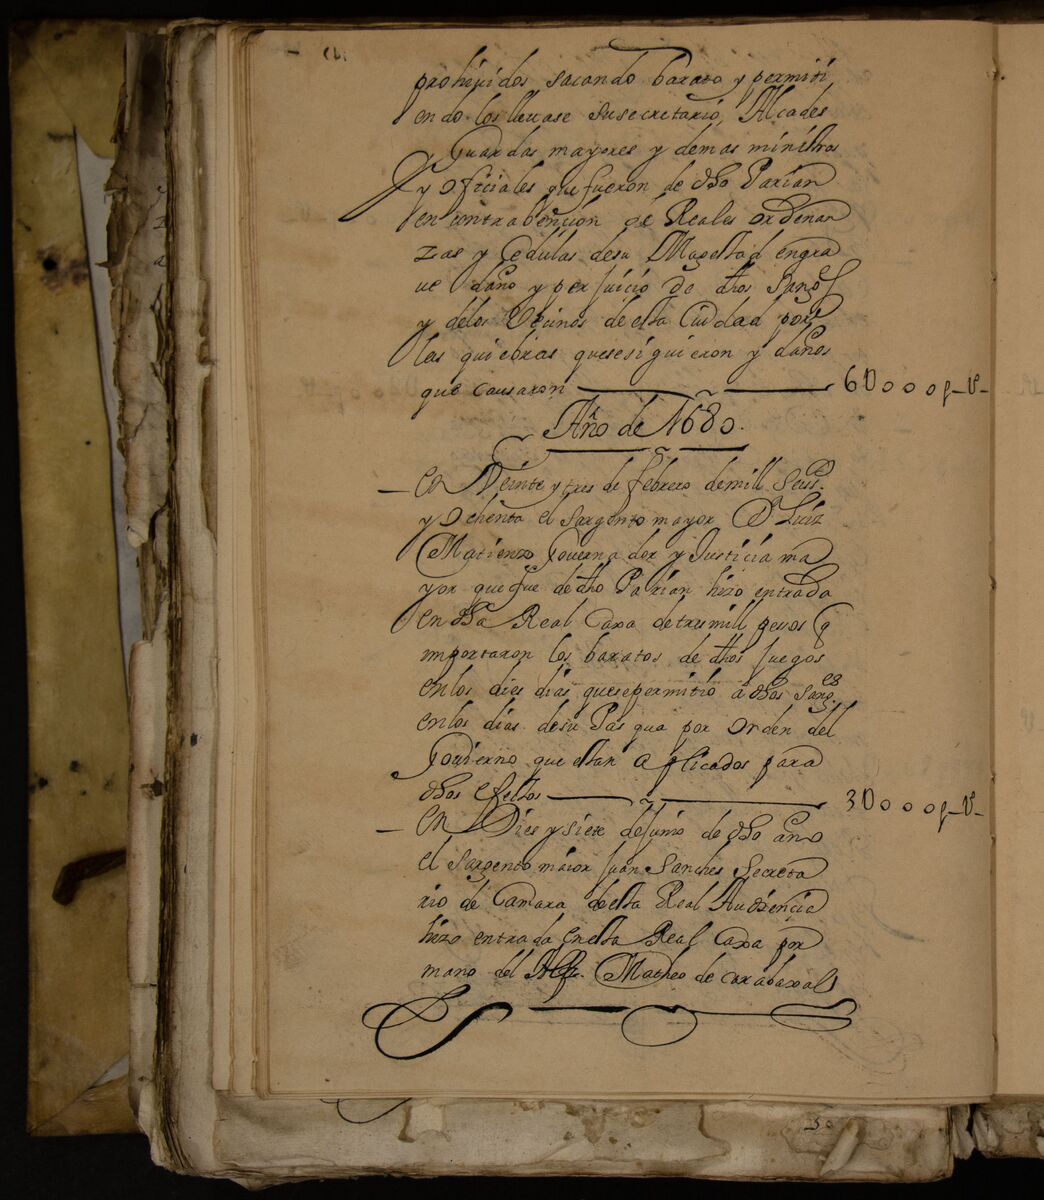 prohiuidos sacando barato y permiti
endo los lleuase su secretario, Alcades
Guardas mayores y demas ministros
y oficiales que fueron de dho Parian
en contrabencion de Reales ordenan
zas y Cedulas de su Magestad en gra
ue daño y perjuicio de dhos Sangs
y de los Vecinos de esta Ciudad por
las quiebras que se siguieron y daños
que causaron 6U000 ps
Año de 1680.
en Veinte y tres de febrero de mill Seiss.
y ochenta el Sargento mayor Dn Luiz
Matienzo Gouernador y Justicia ma
yor que fue de dho Parian hizo entrada
en dha Real Caxa de tres mill pesos q
importaron los baratos de dhos juegos
en los dies dias que se permitió á dhos Sanges
en los dias de su Pasqua por orden del
Gouierno que estan aplicados para
dhos efectos 3U000 ps
en Dies y siete de Junio de dho año
el Sargento maior Juan Sanches Secreta
rio de Camara de esta Real Audiencia
hizo entrada en esta Real Caxa por
mano del Alfz. Matheo de Carabaxal